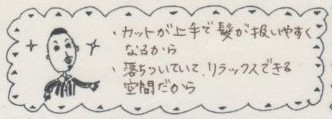 ・カットが上手で髪が扱いやすく
なるから
・落ちついていて、リラックスできる
空間だから